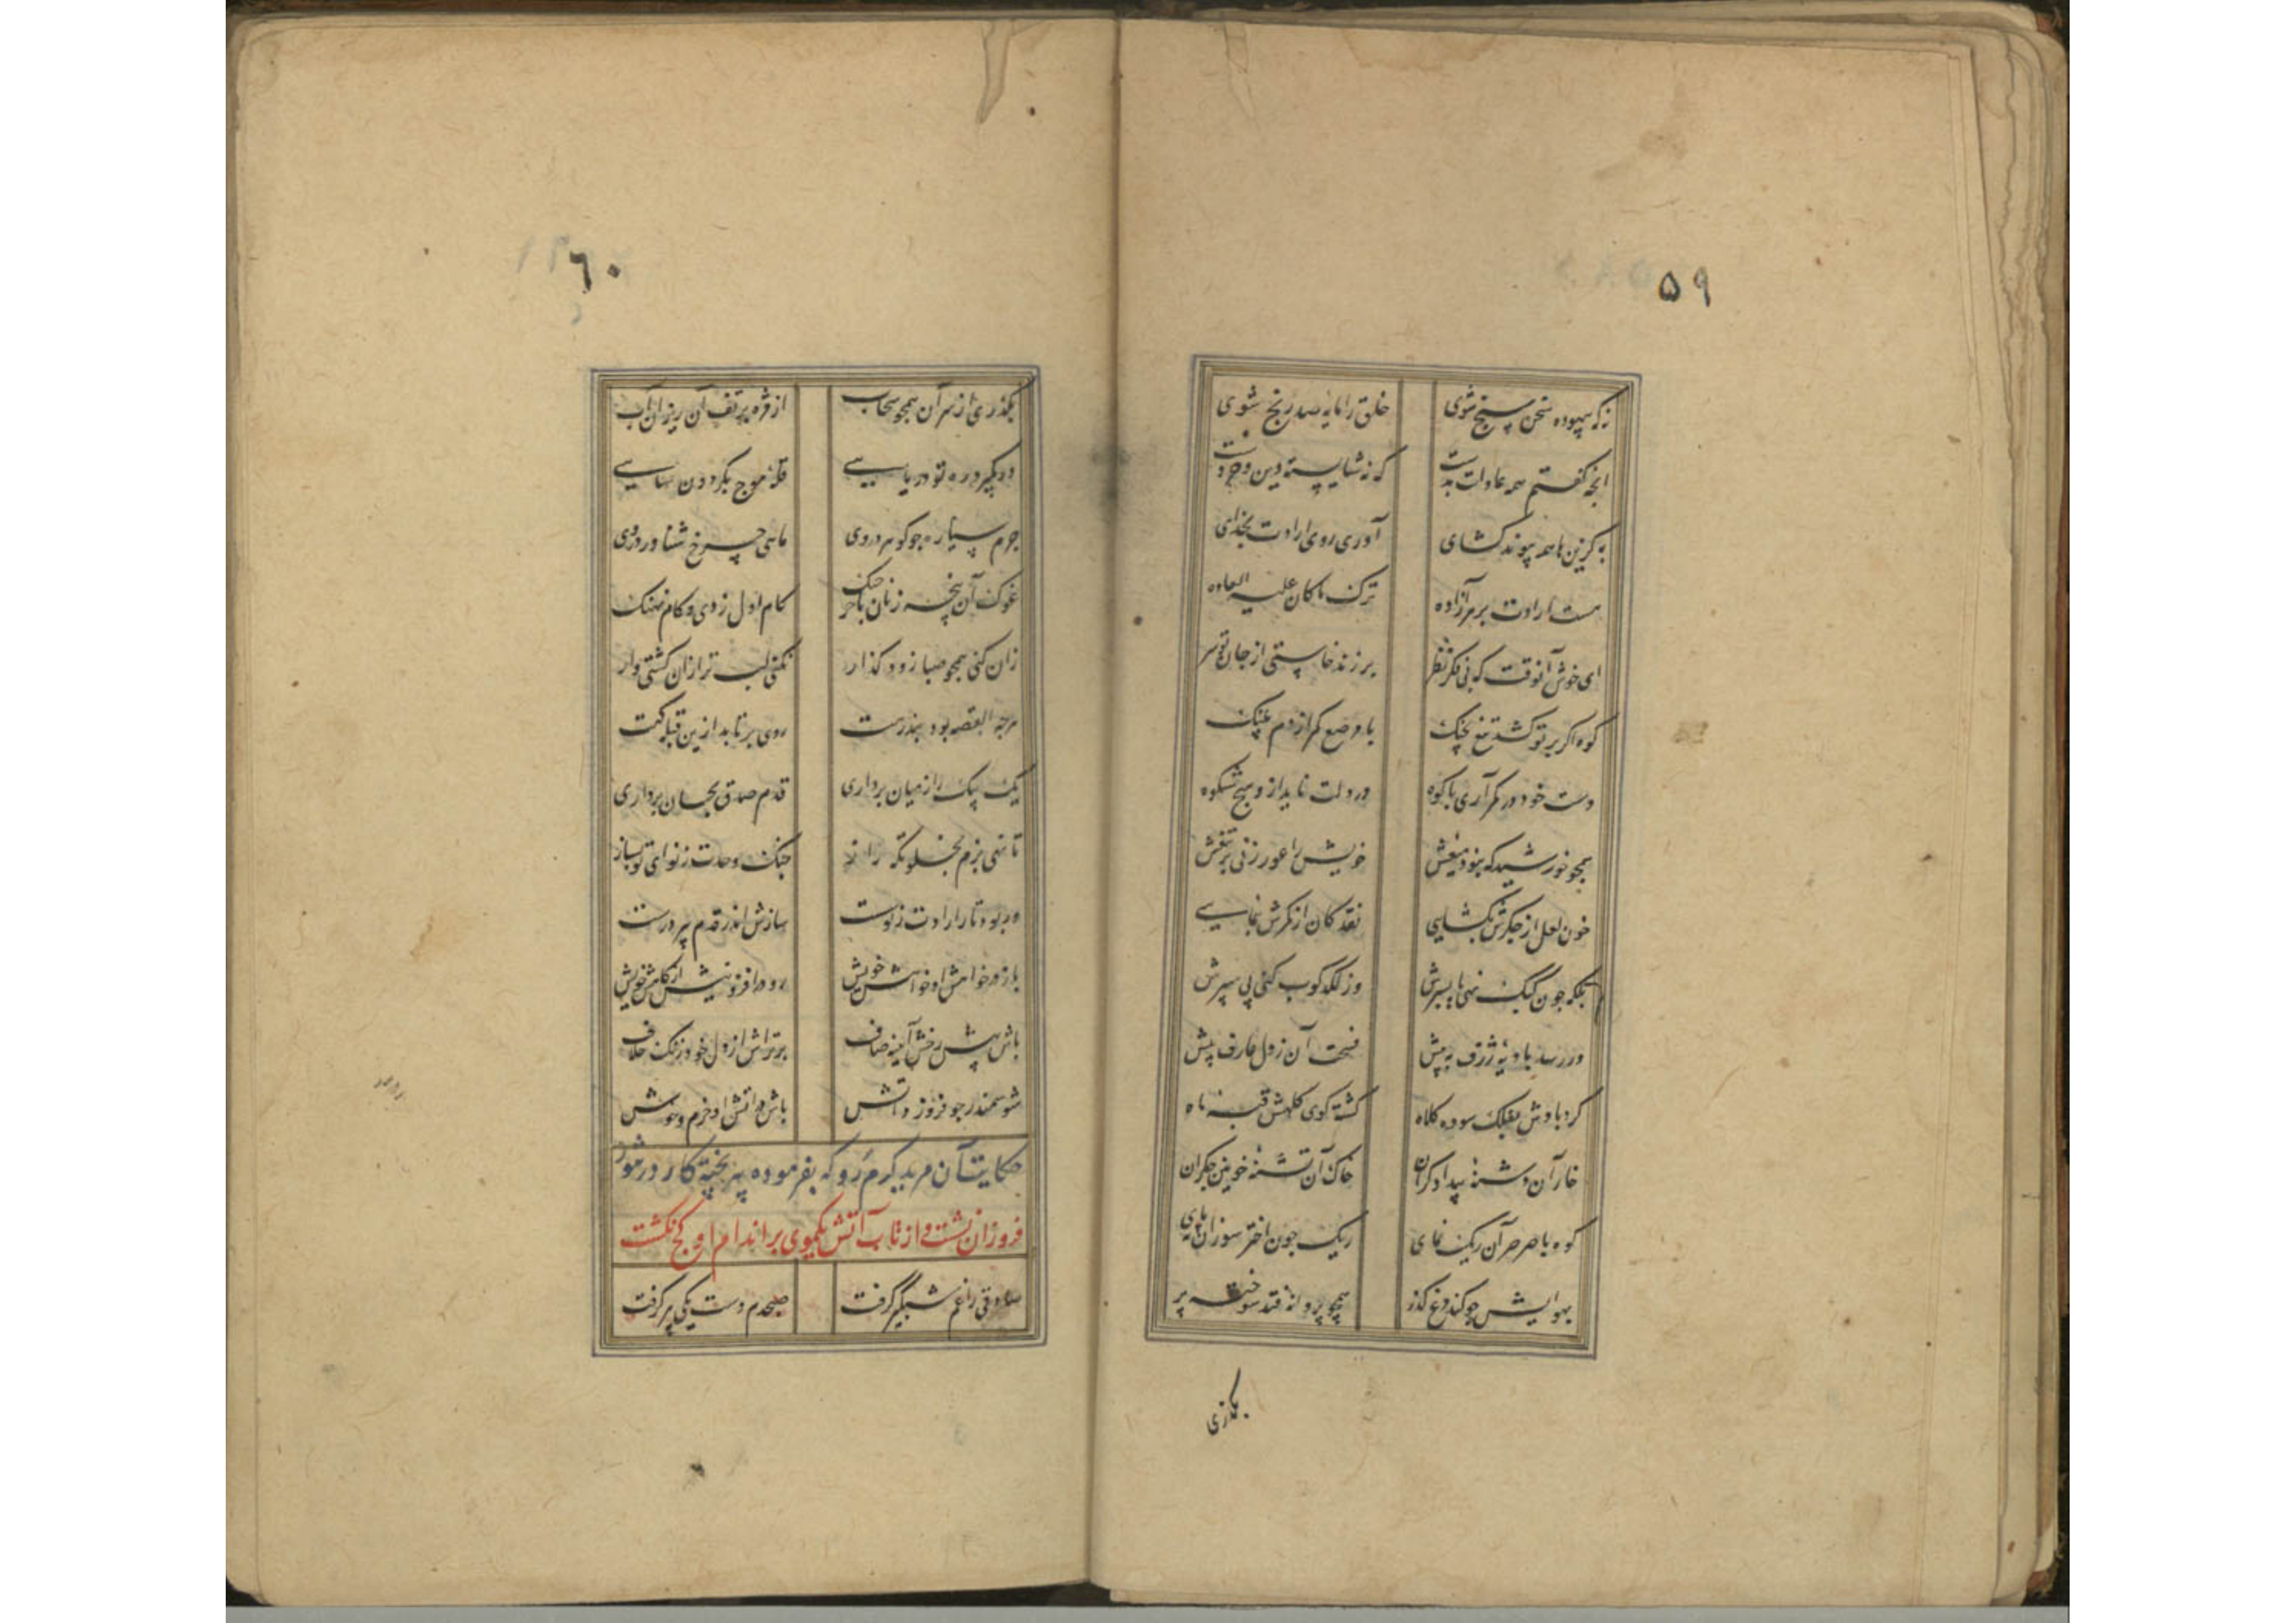 ۵۹
نه که بیهوده سخن سنج شوی خلق را مایه صد رنج شوی
انچه گفتم همه عادات بدست که نه شایسته دین و خردست
به کزین ها همه پیوند گشای آوری روی ارادت بخدای
هست ارادت بر هر آزاده ترک ما کان علیه العاده
ای خوش آنوقت که بی فکر و نظر بر زند خواستی از جان تو سر
کوه اگر بر تو کشد تیغ بجنگ با مرصع کمر از دم پلنگ
دست خود در کمر آری با کوه در دلت ناید ازو هیچ شکوه
همچو خورشید که بنود میغش خویش را عور زنی بر تیغش
خون لعل از جگرش بگشایی نقد کان از کمرش بنمایی
بلکه چون کبک نهی پا بسرش وز لگدکوب کنی پی سپرش
ور رسد بادیهٔ ژرف به پیش فسحت آن ز دل عارف بیش
گردبادش بفلک سوده کلاه گشته گوی کلهش قبه ماه
خار آن دشنهٔ بیدادگران خاک آن تشنهٔ خونین جگران
کوه با صرصر آن ریگ نمای ریگ چون اختر سوزان ته پای
بهوایش چو کند مرغ گذر همچو پروانه فتد سوخته پر
بگذری
۶۰
بگذری از سر آن همچو سحاب از مژه بر تف آن ریزان آب
ور بگیرد ره تو دریایی قلزم موج بگردون سایی
جرم سیاره چو گوهر در وی ماهی چرخ شناور در وی
غوک آن پنجه زنان با خرچنگ کام اول زدی و کام نهنگ
زان کنی همچو صبا زود گذار نکنی لب تر ازان کشتی وار
هرچه القصه بود بندرهت روی برتابد ازین قبله گهت
یک بیک را ز میان برداری قدم صدق بجان برداری
تا نهی بزم بخلوتگه راز چنگ وحدت ز نوای تو بساز
ور بود تار ارادت ز تو سست سازش اندر قدم پیر درست
بار در خواهش او خواهش خویش رو در افزونیش از کاهش خویش
باش پیش رخش آیینه صاف برتراش از دل خود زنگ خلاف
شو سمندر چو فروزد آتش باش در آتش او خرم و خوش
حکایت آن مرید گرم رو که بفرموده پیر پخته کار در تنور
فروزان نشست و از تاب آتش یکموی بر اندام او کج نگشت
صادقی را غم شبگیر گرفت صبحدم دست یکی پیر گرفت